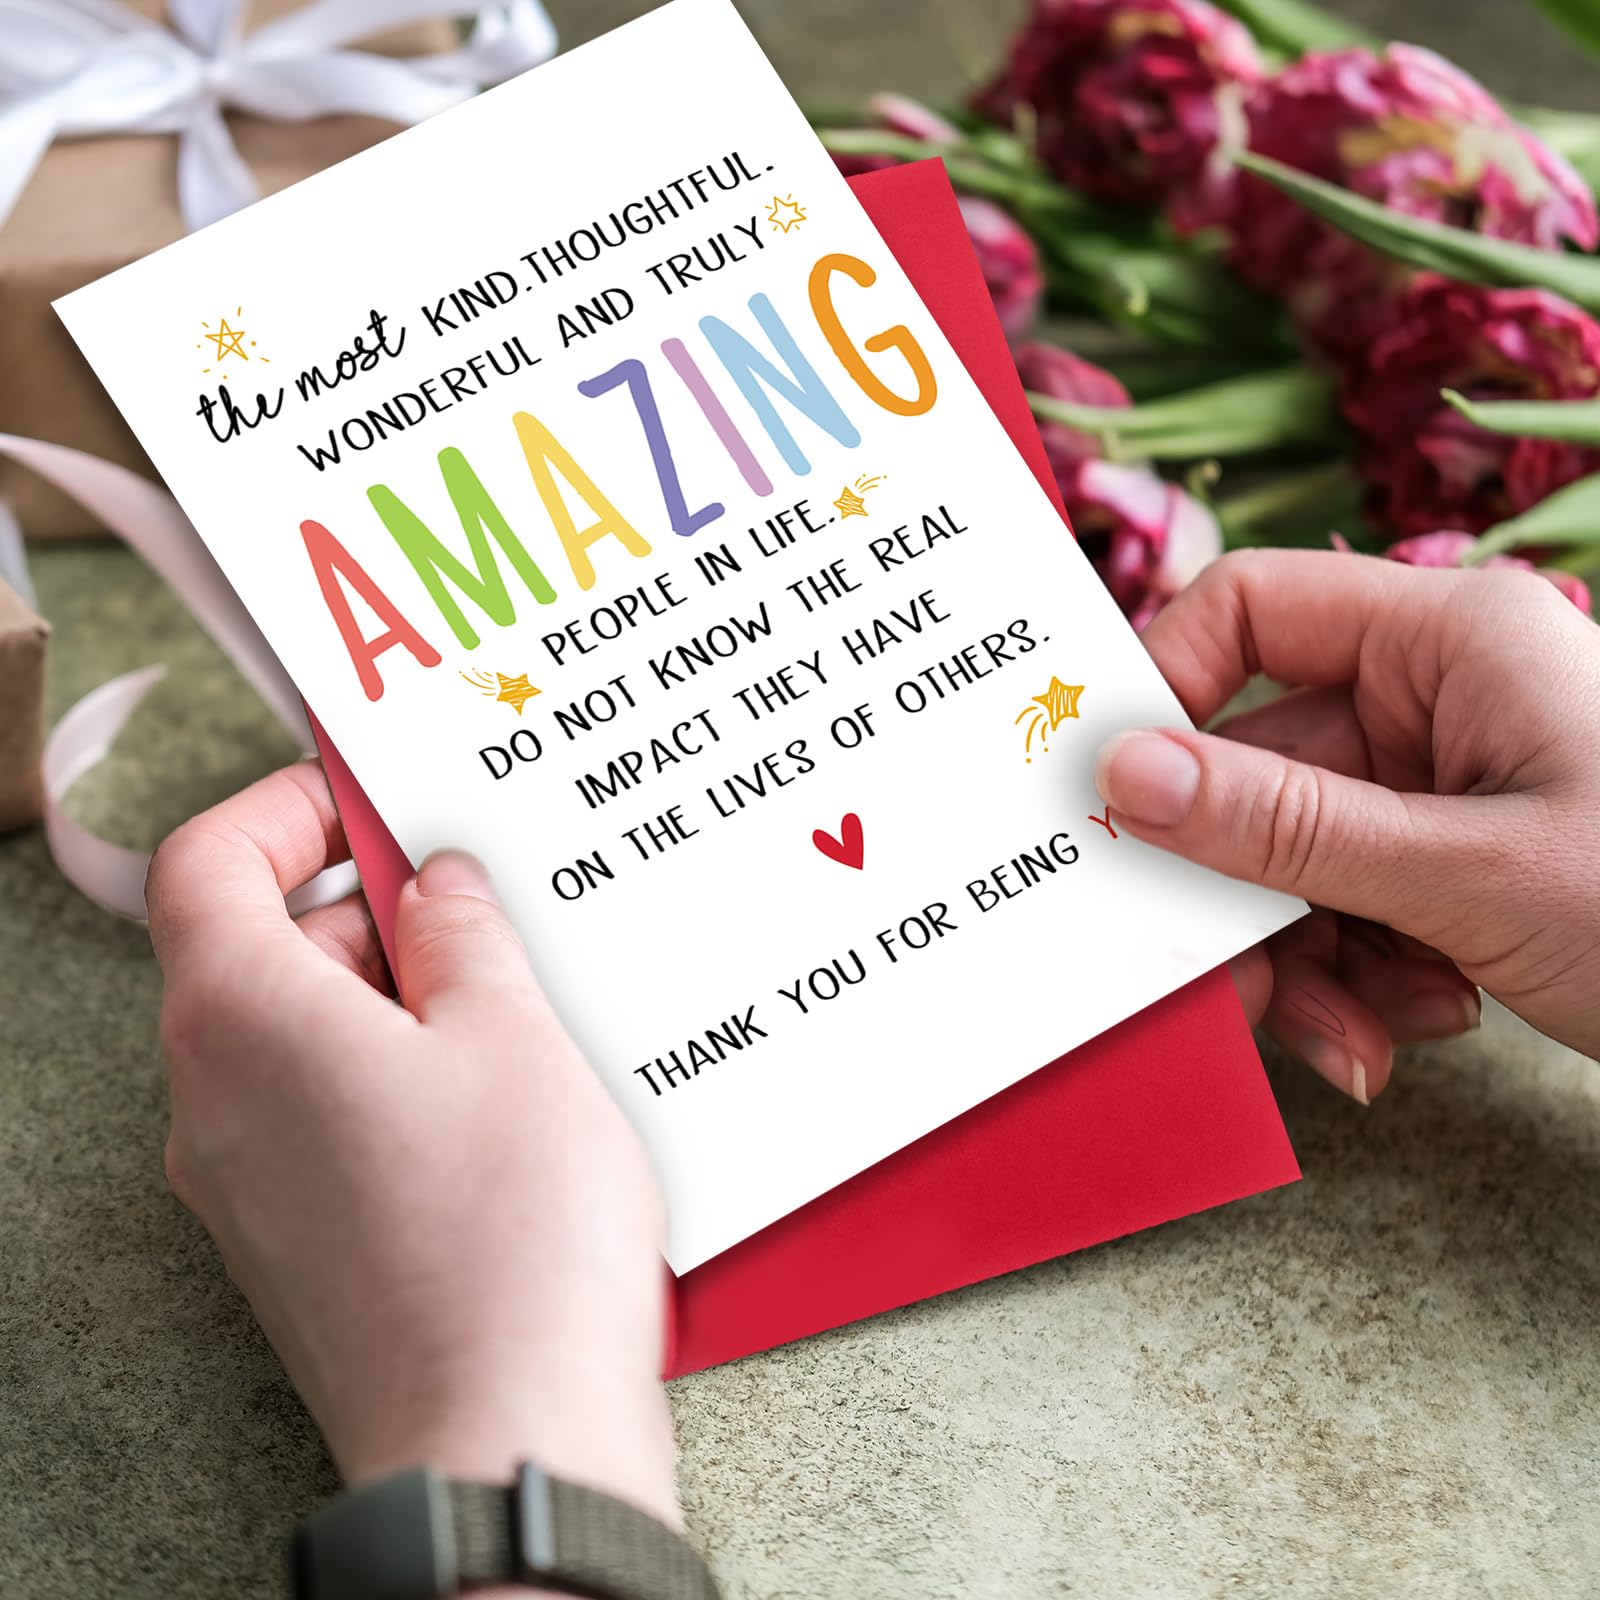 the most KIND.THOUGHTFUL.
WONDERFUL AND TRULY
AMAZING
PEOPLE IN LIFE.
DO NOT KNOW THE REAL
IMPACT THEY HAVE
ON THE LIVES OF OTHERS.
THANK YOU FOR BEING